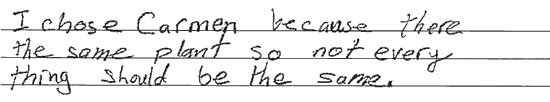 I chose Carmen because there
the same plant so not every
thing should be the same.